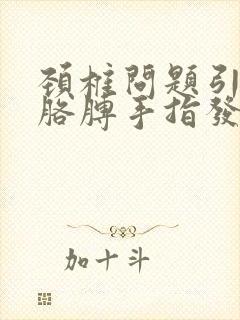 頚椎問題引
胳膊手指發
加十斗